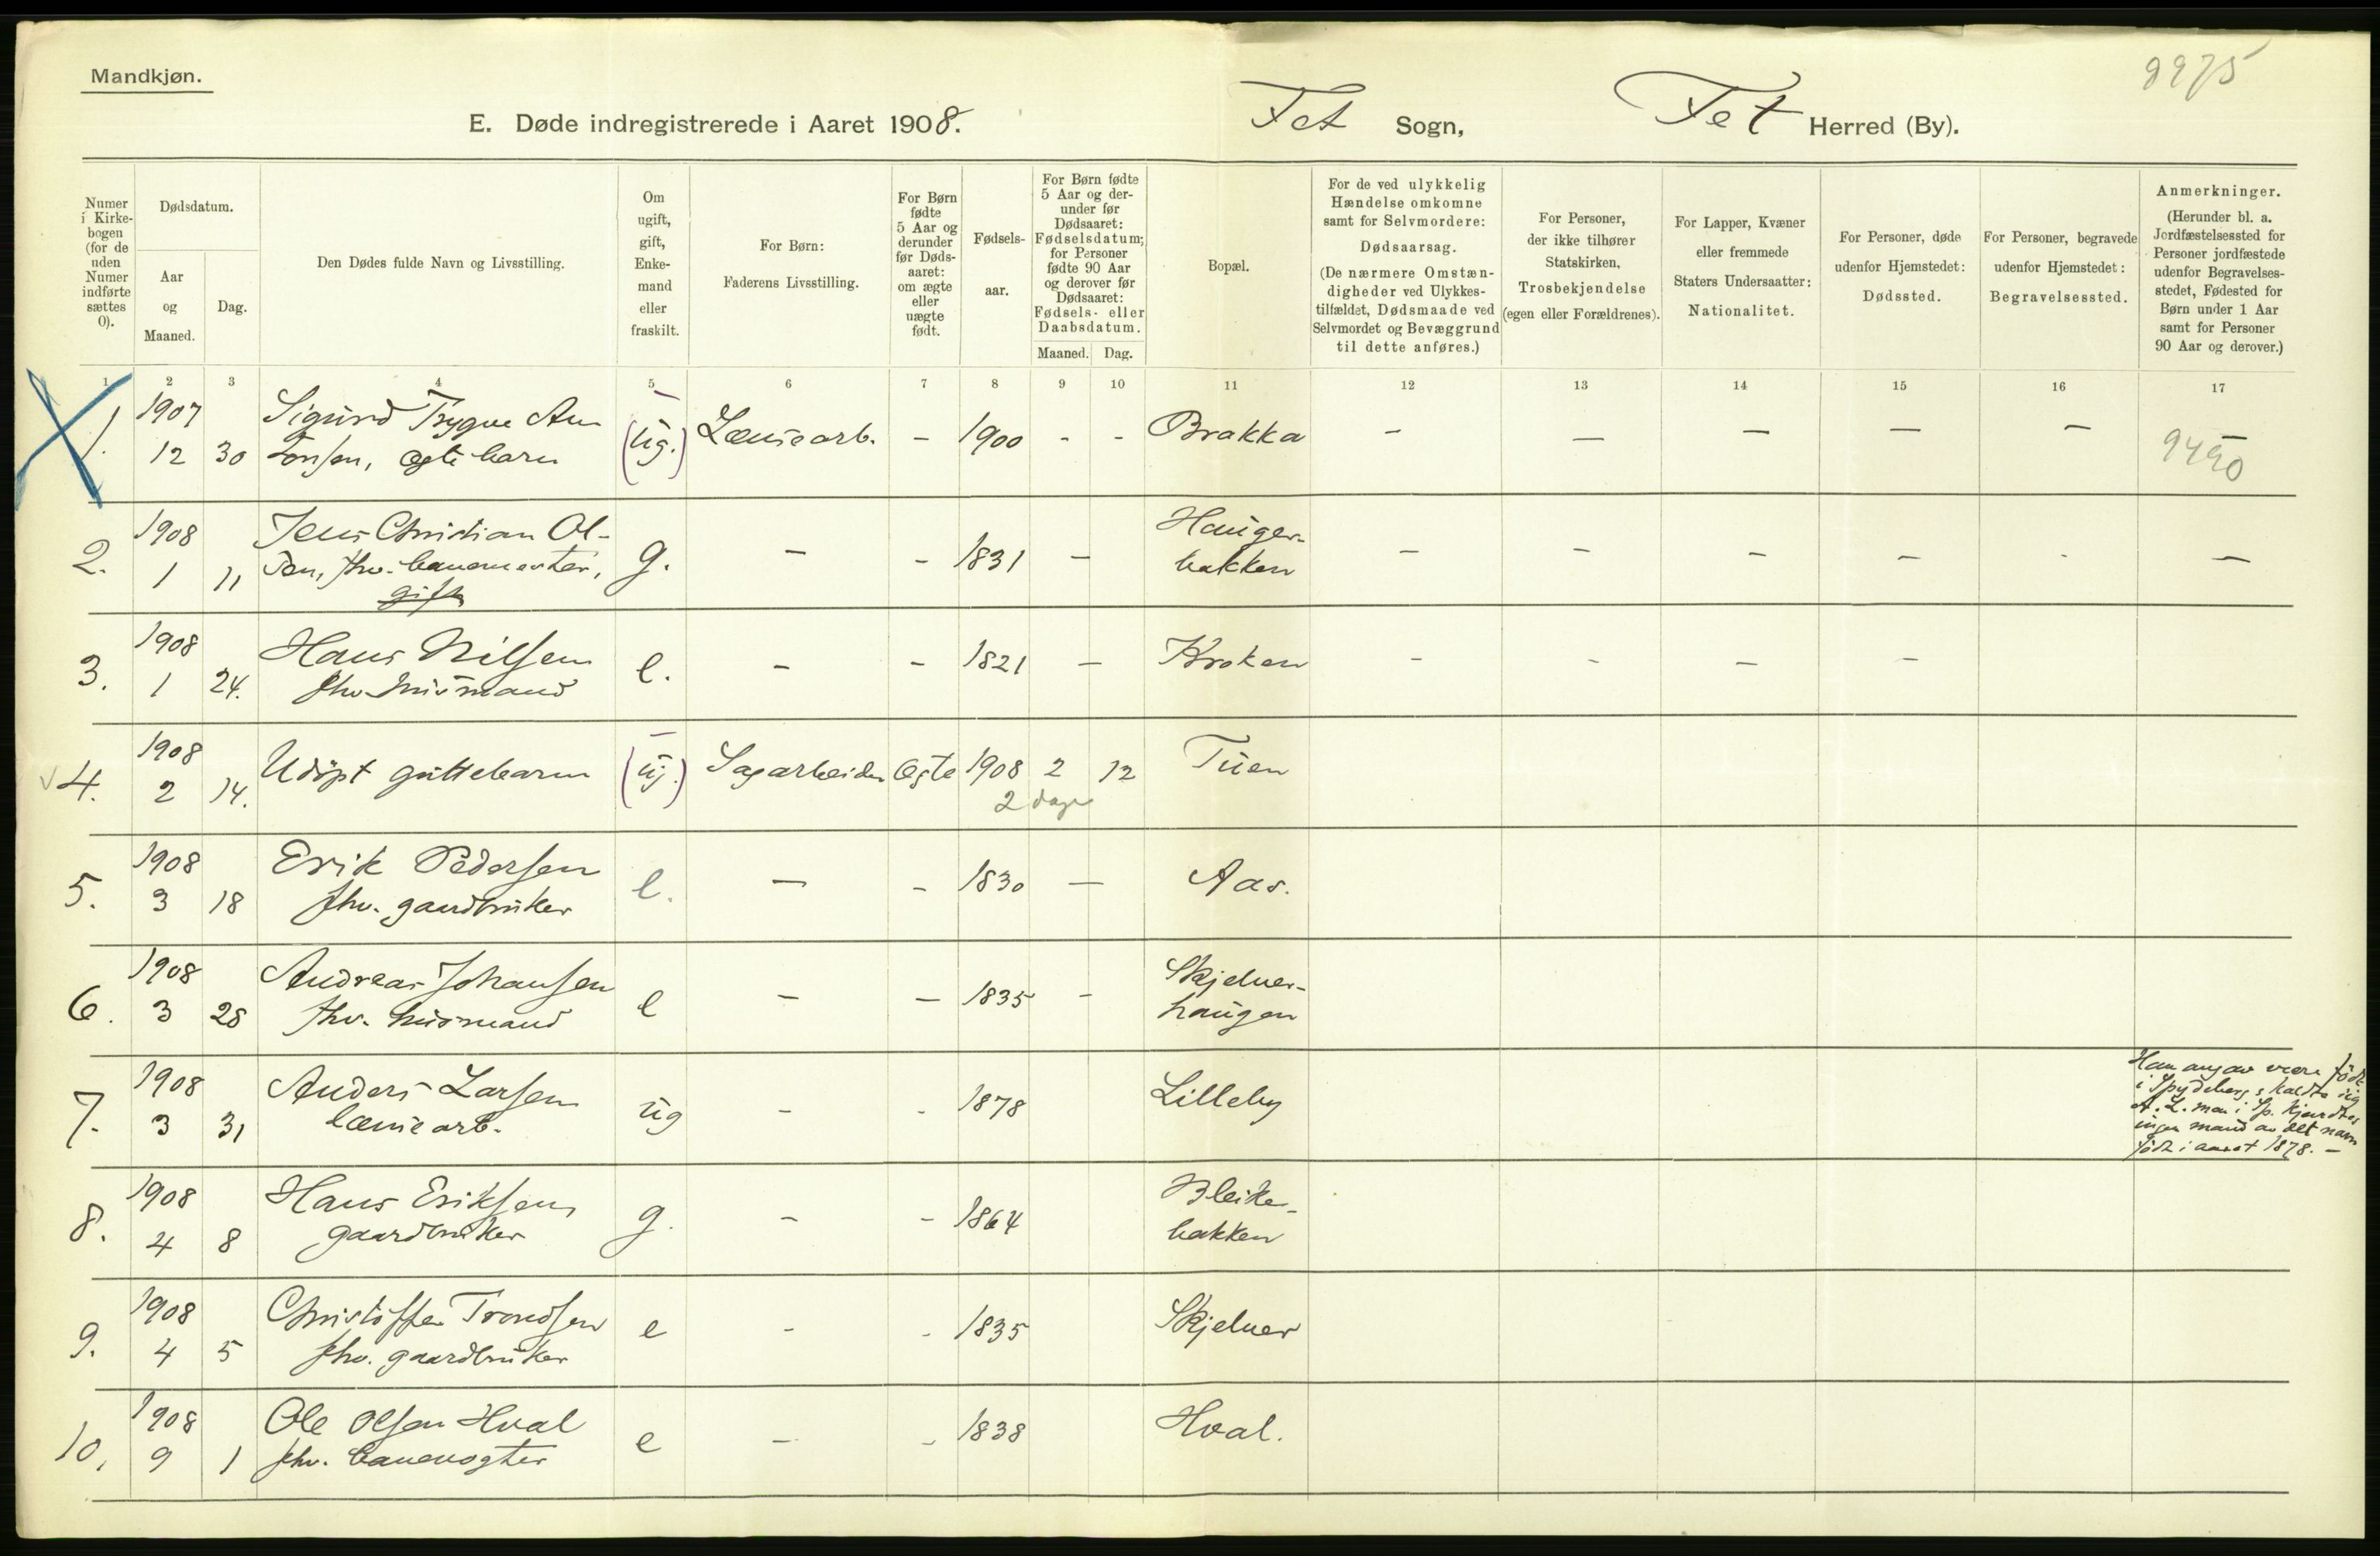 Mandkjøn.
9975
E. Døde indregistrerede i Aaret 1908.
Fet Sogn,
Fet Herred (By).
Numer i Kirke-bogen (for de uden Numer indførte sættes 0).
Dødsdatum.
Aar og Maaned.
Dag.
Den Dødes fulde Navn og Livsstilling.
Om ugift, gift, Enke-mand eller fraskilt.
For Børn:
Faderens Livsstilling.
For Børn fødte 5 Aar og derunder før Døds-aaret: om ægte eller uægte født.
Fødsels-aar.
For Børn fødte 5 Aar og der-under før Dødsaaret: Fødselsdatum; for Personer fødte 90 Aar og derover før Dødsaaret: Fødsels- eller Daabsdatum.
Maaned. Dag.
Bopæl.
For de ved ulykkelig Hændelse omkomne samt for Selvmordere:
Dødsaarsag.
(De nærmere Omstæn-digheder ved Ulykkes-tilfældet, Dødsmaade ved Selvmordet og Bevæggrund til dette anføres.)
For Personer, der ikke tilhører Statskirken,
Trosbekjendelse
(egen eller Forældrenes).
For Lapper, Kvæner eller fremmede Staters Undersaatter:
Nationalitet.
For Personer, døde udenfor Hjemstedet:
Dødssted.
For Personer, begravede udenfor Hjemstedet:
Begravelsessted.
Anmerkninger.
(Herunder bl. a. Jordfæstelsessted for Personer jordfæstede udenfor Begravelses-stedet, Fødested for Børn under 1 Aar samt for Personer 90 Aar og derover.)
1 2 3 4 5 6 7 8 9 10 11 12 13 14 15 16 17
1. 1907 12 30 Sigurd Trygve An
tonsen, ægte barn (ug.) Lænsearb. - 1900 - - Brakka - - - - - -
9490
2. 1908 1 11 Jens Christian Ol-
sen, fhv. banemester, g. - - 1831 - Hauger-
bakken - - - - - -
gift
3. 1908 1 24. Hans Nilsen
fhv. husmand e. - - 1821 - Kroken - - - -
4. 1908 2 14. Udöpt guttebarn (ug.) Sagarbeider ægte 1908 2 12 Tuen
2 dage
5. 1908 3 18 Erik Pedersen
fhv. gaardbruker e. - - 1830 - Aas.
6. 1908 3 28 Andreas Johansen
fhv. husmand e - - 1835 - Skjelner-
haugen
7. 1908 3 31 Anders Larsen
lænsearb. ug - - 1878 Lilleby
Han angav være född
i Spydeberg, kaldte sig
A. L. men i Sp. kjendtes
ingen mand av det navn
född i aaret 1878. -
8. 1908 4 8 Hans Eriksen
gaardbruker g. - - 1864 Bleike-
bakken
9. 1908 4 5 Christoffer Trondsen
fhv. gaardbruker e - - 1835 Skjelner
10. 1908 9 1 Ole Olsen Hval
fhv. banevogter e - - 1838 Hval.